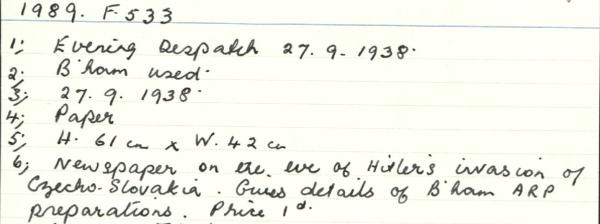 1989. F533
1; Evening Despatch 27. 9. 1938.
2; B'ham used.
3; 27. 9. 1938.
4; Paper
5; H. 61 cm x W. 42 cm
6; Newspaper on the eve of Hitler's invasion of
Czecho-Slovakia. Gives details of B'ham ARP
preparations. Price 1d.